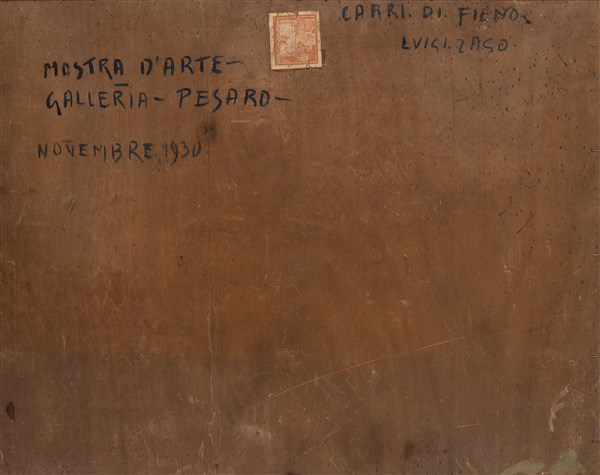 CARRI. DI. FIENO.
LUIGI. ZAGO.
MOSTRA D'ARTE-
GALLERIA - PESARO -
NOVEMBRE. 1930.